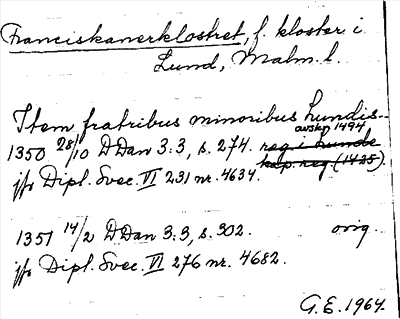 Franciskanerklostret, f. kloster i
Lund, Malm. l.
Item fratribus minoribus Lundis—
avskr 1494
1350 28/10 DDan 3:3, s. 274. reg i Lunde
kop. reg (1425)
jfr Dipl. Svec. VI 231 nr. 4634.
1351 14/2 DDan 3:3, s. 302. orig.
jfr Dipl. Svec. VI 276 nr. 4682.
G.E. 1964.